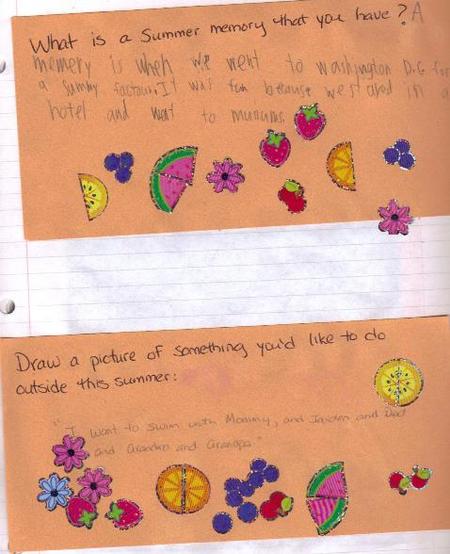 What is a Summer memory that you have? A
memery is when we went to washington D.C for
a summy factoun. It was fun because we stayed in a
hotel and want to mueums.
Draw a picture of something you'd like to do
outside this summer:
"I want to swim with Mommy, and Jaiden and Dad
and Grandma and Grandpa"